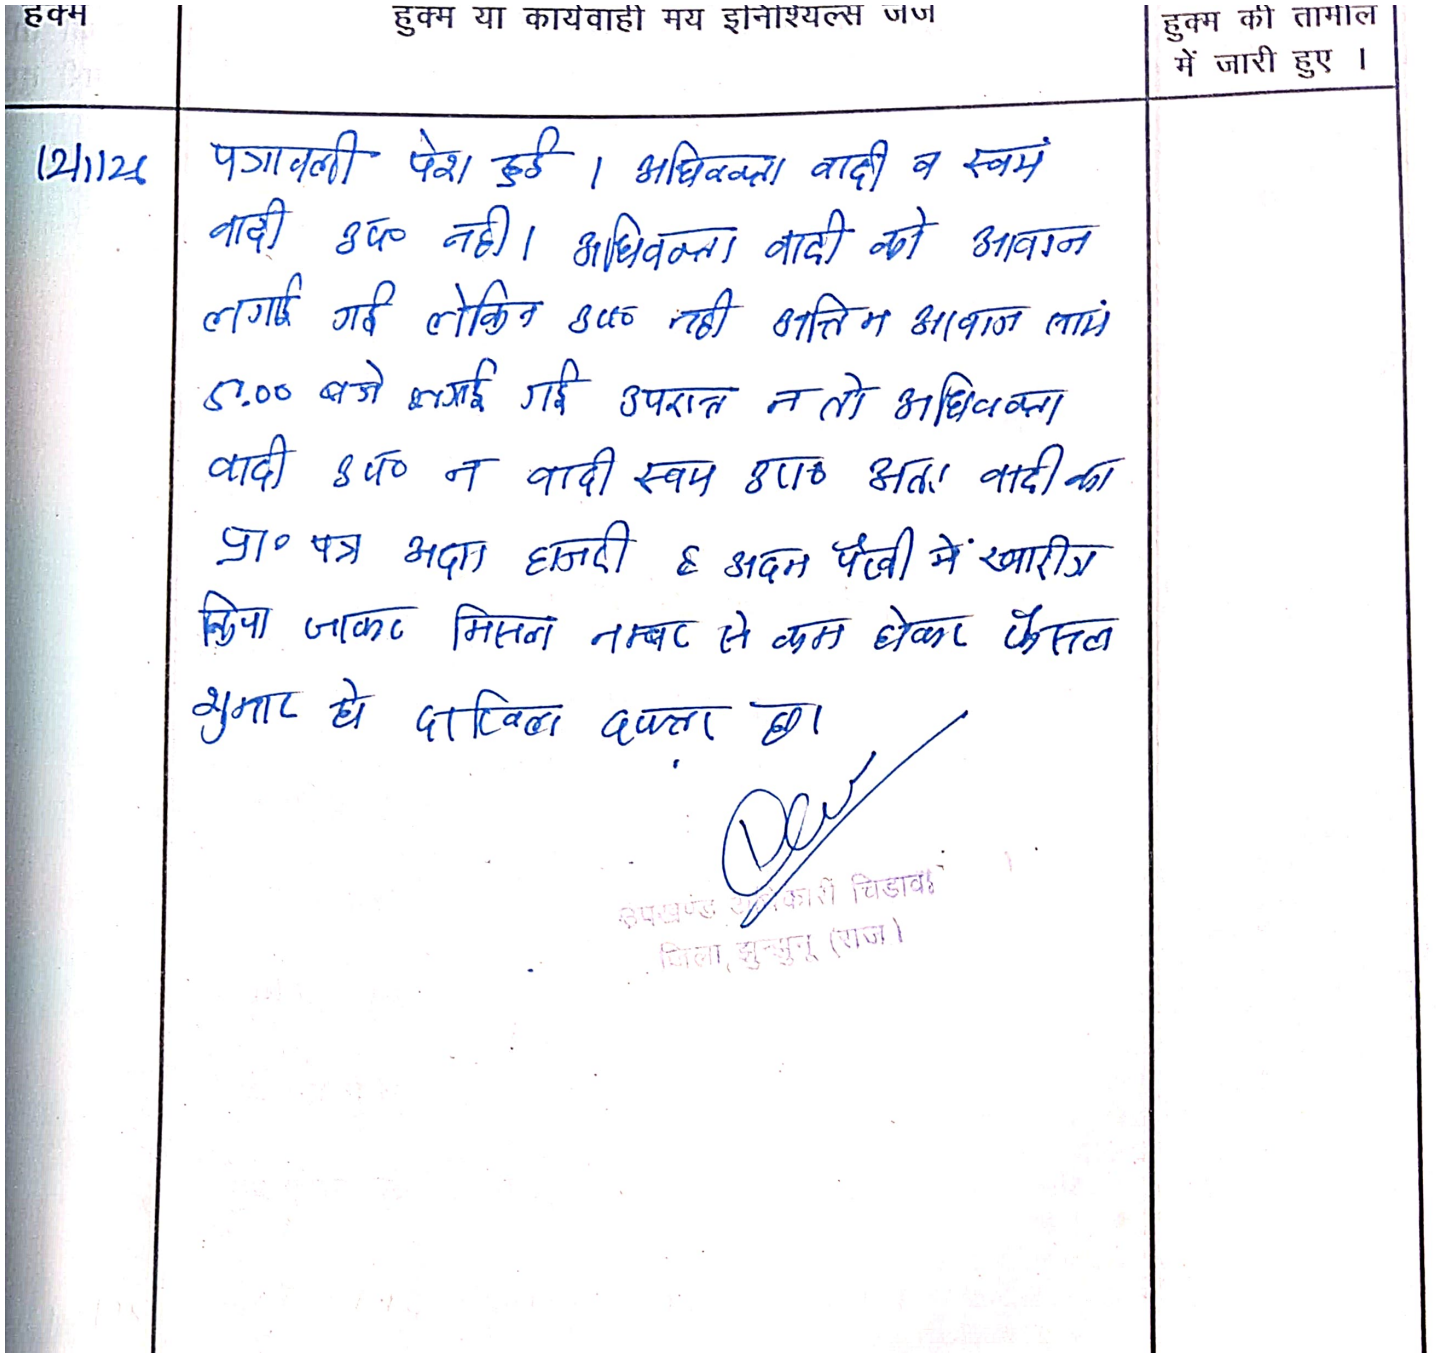 हुक्म
हुक्म या कार्यवाही मय इनिशियल्स जज
हुक्म की तामील
में जारी हुए ।
12/1/26
पत्रावली पेश हुई । अधिवक्ता वादी व स्वयं
वादी उप० नही। अधिवक्ता वादी को आवाज
लगाई गई लेकिन उप० नही अन्तिम आवाज सायं
5.00 बजे लगाई गई उपरान्त न तो अधिवक्ता
वादी उप० न वादी स्वयं उप० अतः वादी का
प्रा० पत्र अदम हाजरी व अदम पैरवी में खारीज
किया जाकर मिसल नम्बर से कम होकर फैसल
शुमार हो दाखिल दफ्तर हो।
उपखण्ड अधिकारी चिडावा
जिला झुन्झुनू (राज)